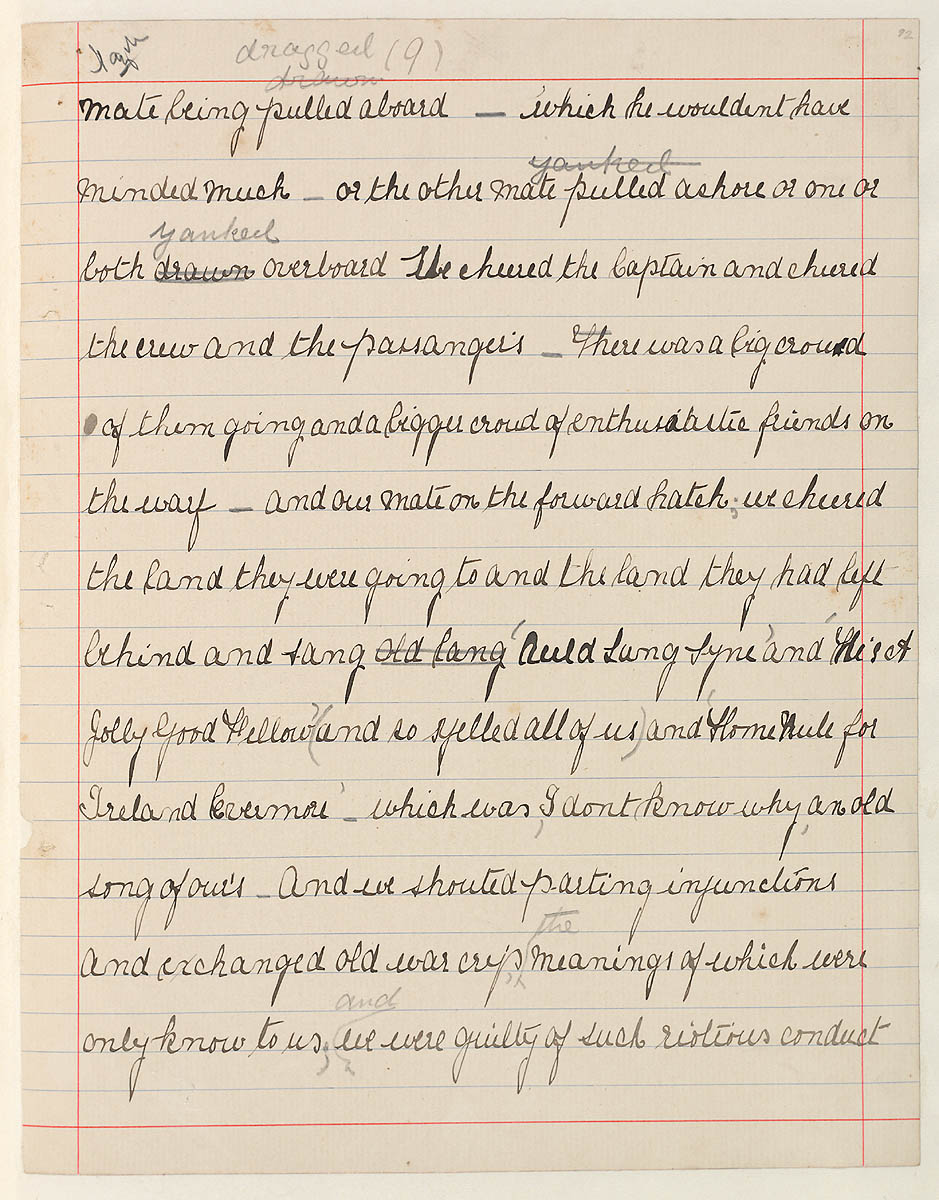 92
dragged (9)
drawn
mate being pulled aboard — which he wouldent have
yanked
minded much — or the other mate pulled ashore or one or
yanked
both drawn overboard We cheered the Captain and cheered
the crew and the passanger's — There was a big crowd
of them going and a bigger croud of enthusiatastic friends on
the warf — and our mate on the forward hatch; we cheered
the land they were going to and the land they had left
behind and sang old lang 'Auld Lang Syne' and 'He's A
Jolly Good Fellow' (and so yelled all of us) and 'Home Rule for
Ireland Evermore' — which was, I dont know why, an old
song of our's — And we shouted parting injunctions
the
and exchanged old war crys, meanings of which were
and
only know to us; we were guilty of such riotious conduct